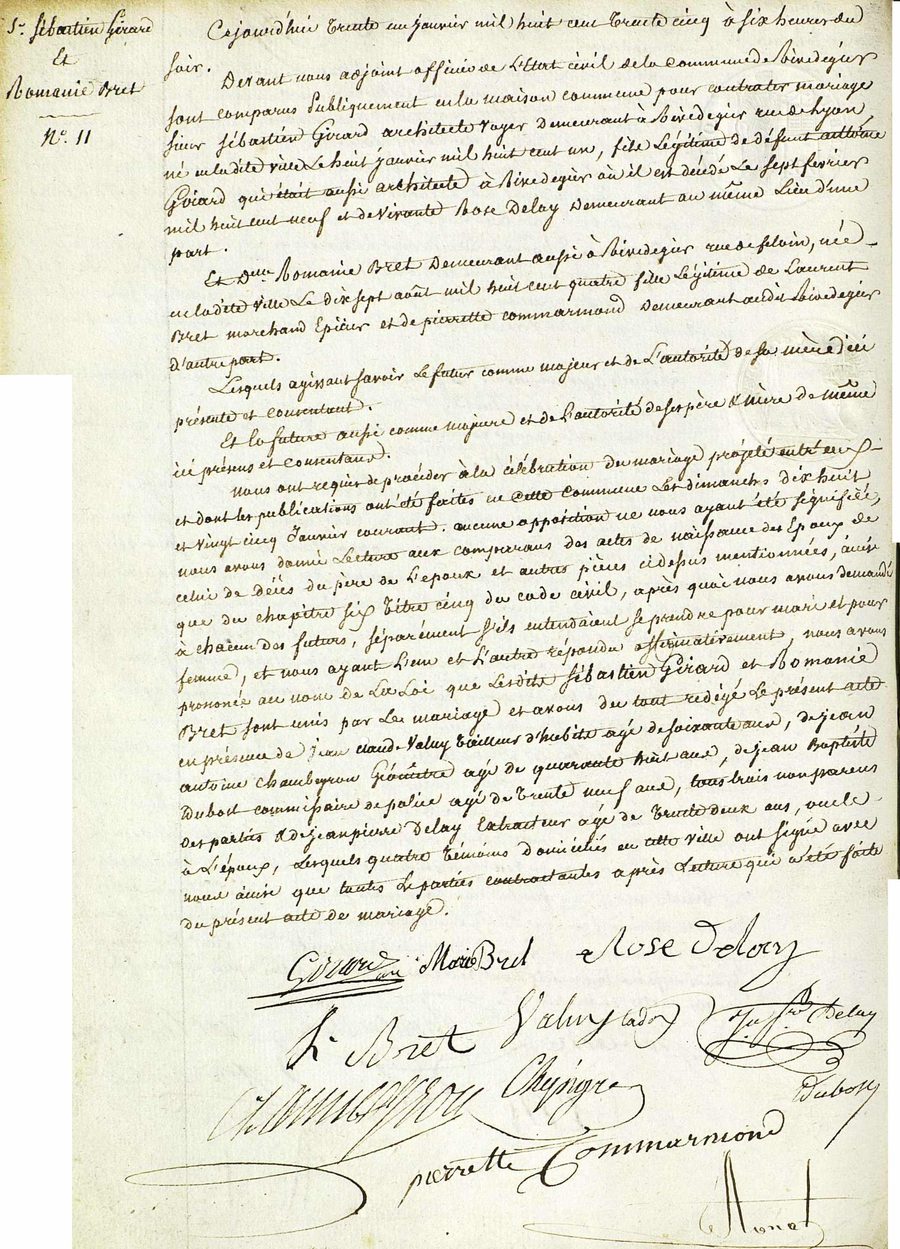 Sr. Sébastien Girard
Et
Romanie Bret
No. 11
Cejourd'hui trente un janvier mil huit cent trente cinq à six heures du
soir.
Devant nous adjoint officier de l'Etat civil de la commune de Rivedegier
sont comparus publiquement en la maison commune pour contracter mariage
sieur Sébastien Girard architecte voyer demeurant à Rivedegier rue de Lyon,
né en ladite ville le huit janvier mil huit cent un, fils légitime de défunt antoine
Girard qui était aussi architecte à Rivedegier où il est décédé le sept fevrier
mil huit cent neuf et de vivante Rose Delay demeurant au même lieu d'une
part.
Et Dlle. Romanie Bret demeurant aussi à Rivedegier rue de feloin, née
en ladite ville le dix sept août mil huit cent quatre fille légitime de Laurent
Bret marchand Epicier et de pierrette commarmond demeurant audit Rivedegier
d'autre part.
Lesquels agissant savoir le futur comme majeur et de l'autorité de sa mère ici
présente et consentant.
Et la future aussi comme majeure et de l'autorité de ses père & mère de même
ici présens et consentans.
nous ont requis de procéder à la célébration du mariage projeté entr'eux
et dont les publications ont été faites en cette commune les dimanches dix huit
et vingt cinq Janvier courant. aucune opposition ne nous ayant été signifiée,
nous avons donné lecture aux comparans des actes de naissance des Epoux de
celui de décès du père de l'epoux et autres pièces cidessus mentionnées, ainsi
que du chapitre six titre cinq du code civil, après quoi nous avons demandé
à chacun des futurs, séparément s'ils entendaient se prendre pour mari et pour
femme, et nous ayant l'un et l'autre répondu affirmativement, nous avons
prononcé au nom de la Loi que lesdits Sébastien Girard et Romanie
Bret sont unis par le mariage et avons du tout redigé le présent acte
en présence de jean claude Valuy tailleur d'habits agé de soixante ans, de jean
antoine chambeyron Géomètre agé de quarante huit ans, de jean Baptiste
Dubost commissaire de police agé de trente neuf ans, tous trois non parens
des parties & de jean pierre Delay Extracteur agé de trente deux ans, oncle
à l'époux, lesquels quatre témoins domiciliés en cette ville ont signé avec
nous ainsi que toutes les parties contractantes après lecture qui a été faite
du présent acte de mariage.
Girard Marie Bret Rose Delay
Bret Valuy Delay
Chambeyron Dubost
pierrette Commarmond